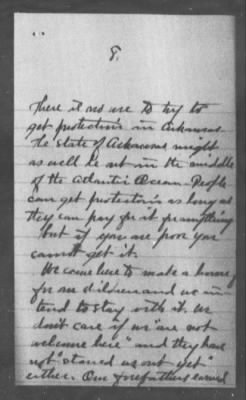 8.
There is no use to try to
get protection in Arkansas
the state of Arkansas might
as well be out in the middle
of the Atlantic Ocean. People
can get protection as long as
they can pay for it
but if you are poor you
cannot get it.
We come here to make a home
for our children and we in-
tend to stay with it. We
don't care if we "are not
welcome here" and they have
not "starved us out yet"
either. Our forefathers earned